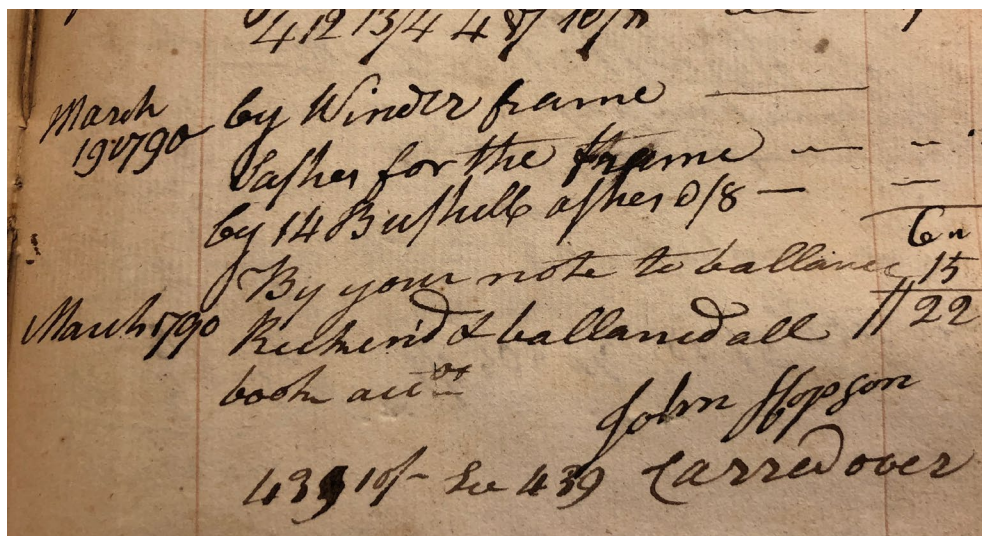 412 13/4 4
March by Winder frame
19 1790
Sashes for the frame
by 14 Bushells ashes d/8 —
6 "
By your note to ballance 15
March 1790 Reckend & ballansed all 22
book acc
John Hopson
439 10/- See 439 Carred over